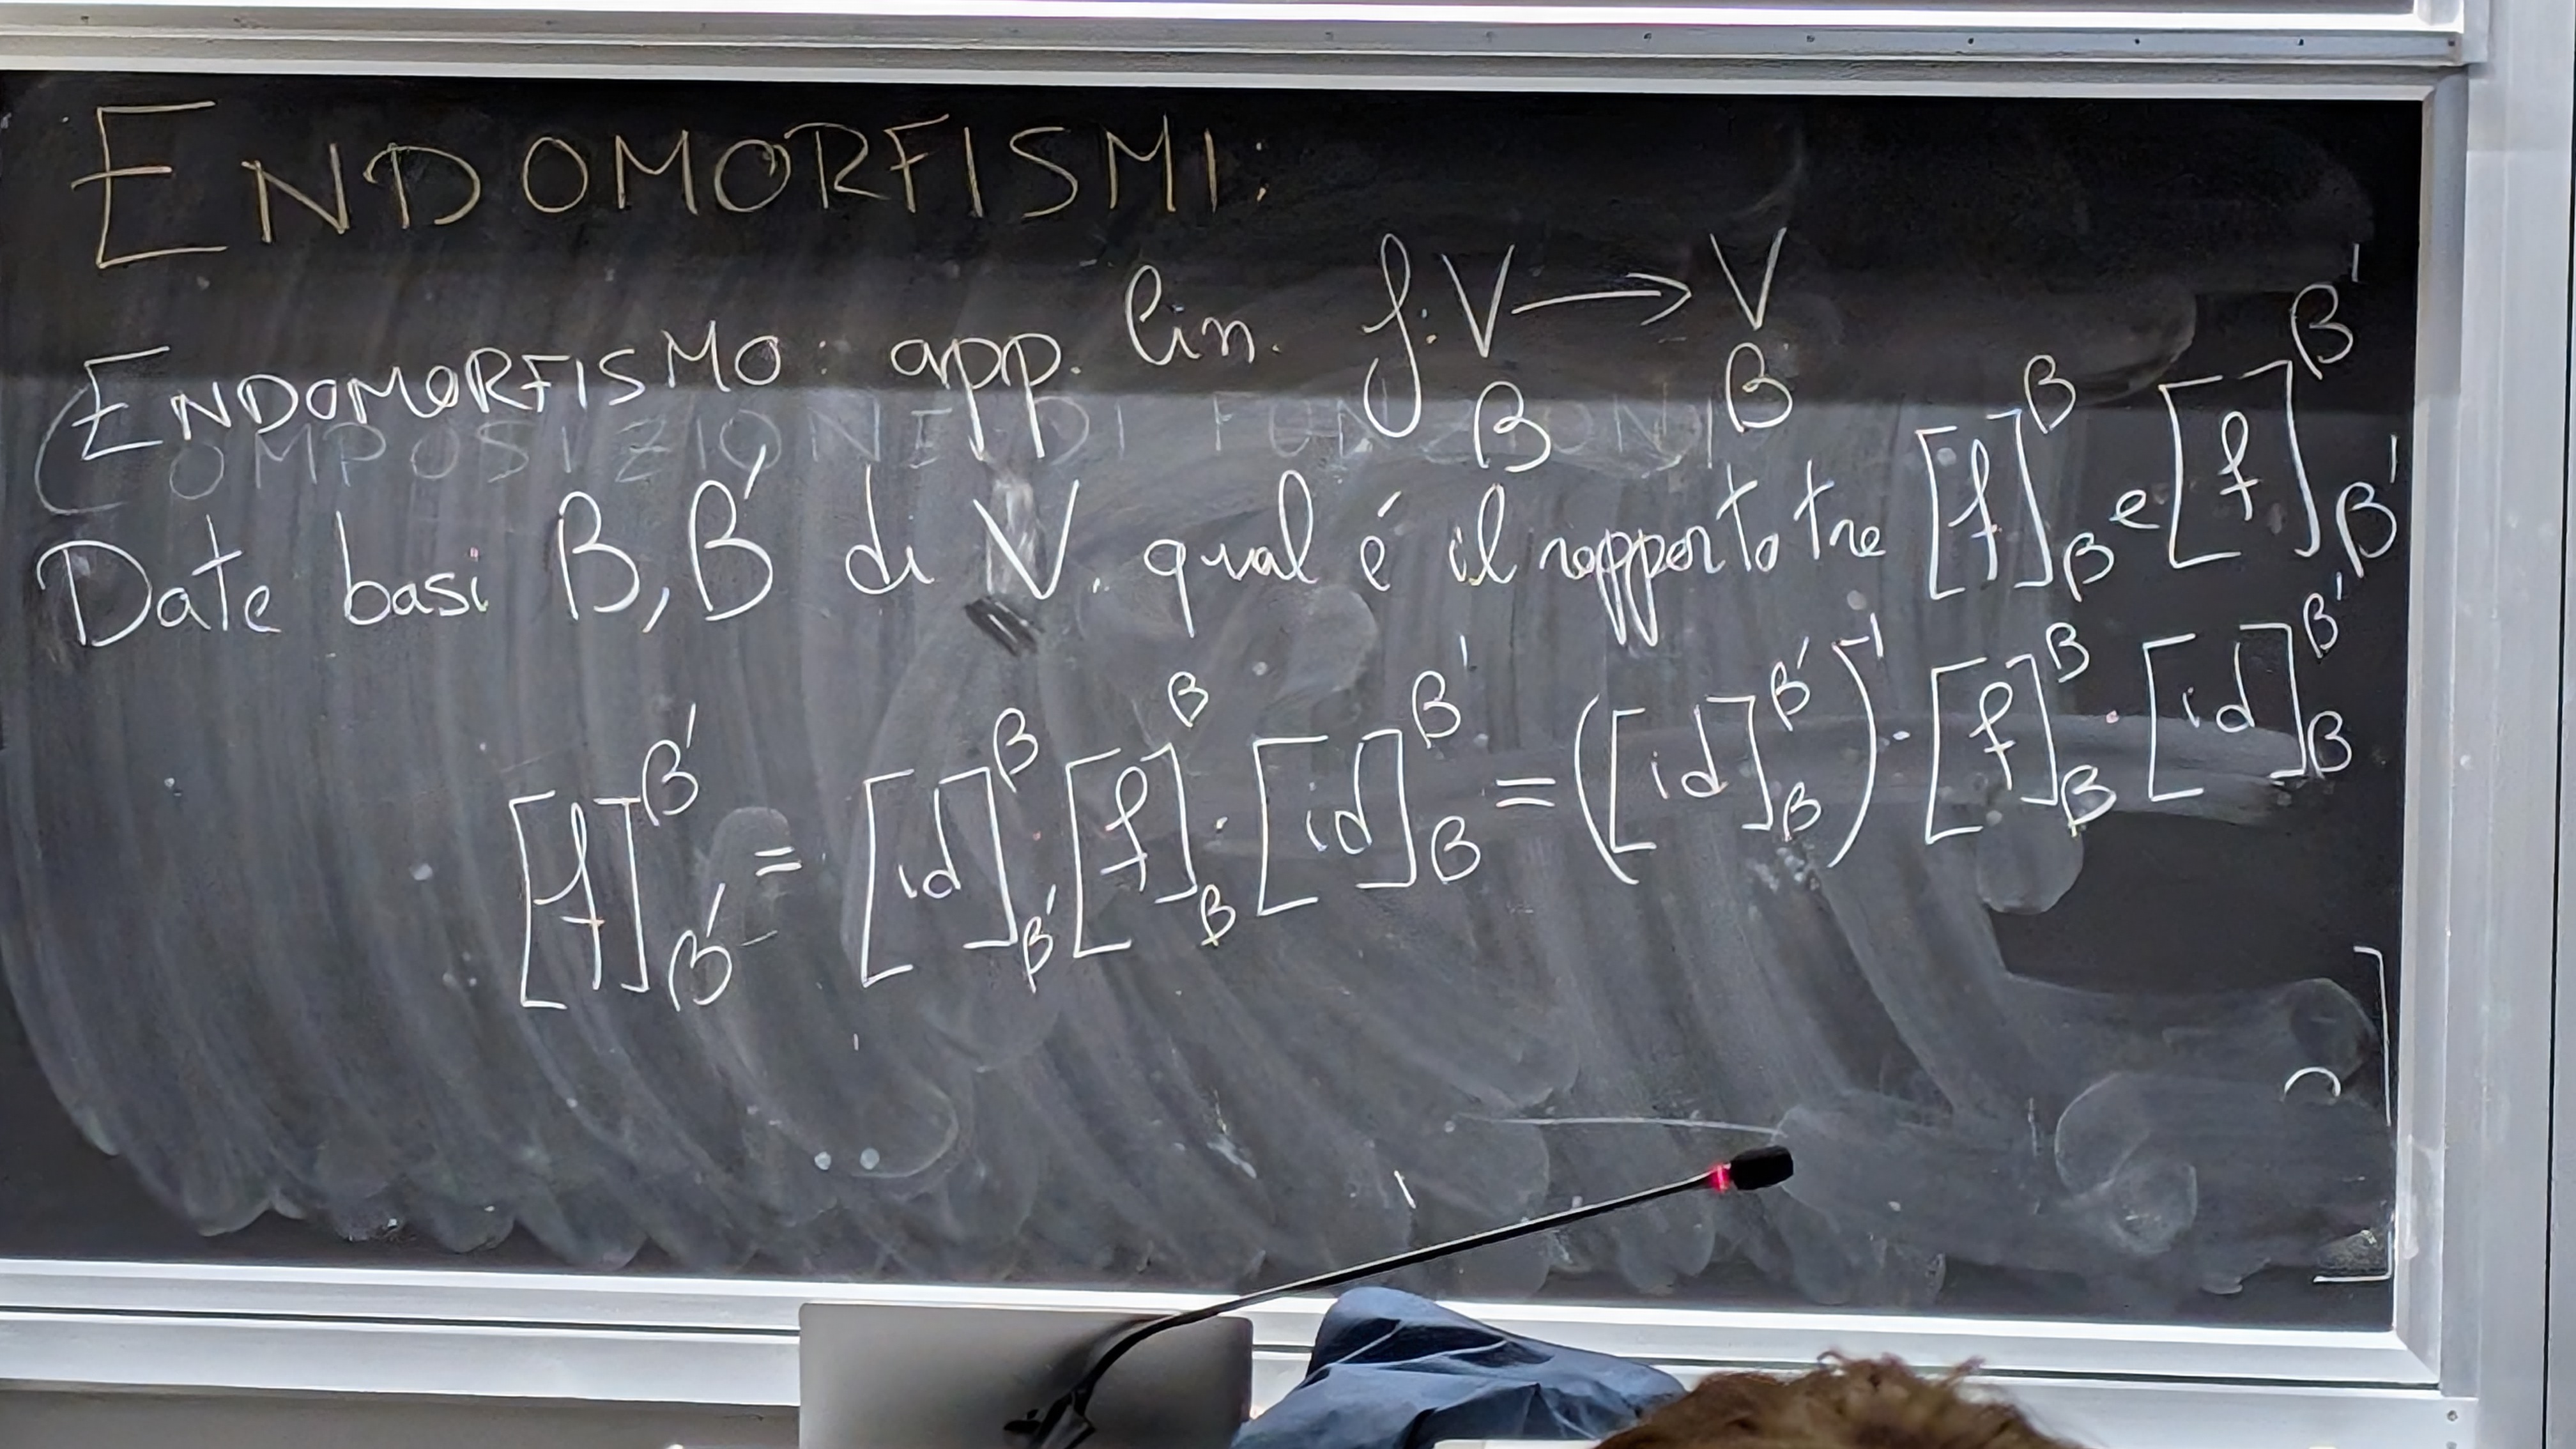 ENDOMORFISMI:
ENDOMORFISMO: app. lin. f: V → V
B B
COMPOSIZIONE DI FUNZIONI
Date basi B, B' di V. qual é il rapporto tra [f]^B_B e [f]^B'_B'
[f]^B'_B' = [id]^B_B' [f]^B_B · [id]^B'_B = ([id]^B'_B)^-1 · [f]^B_B · [id]^B'_B